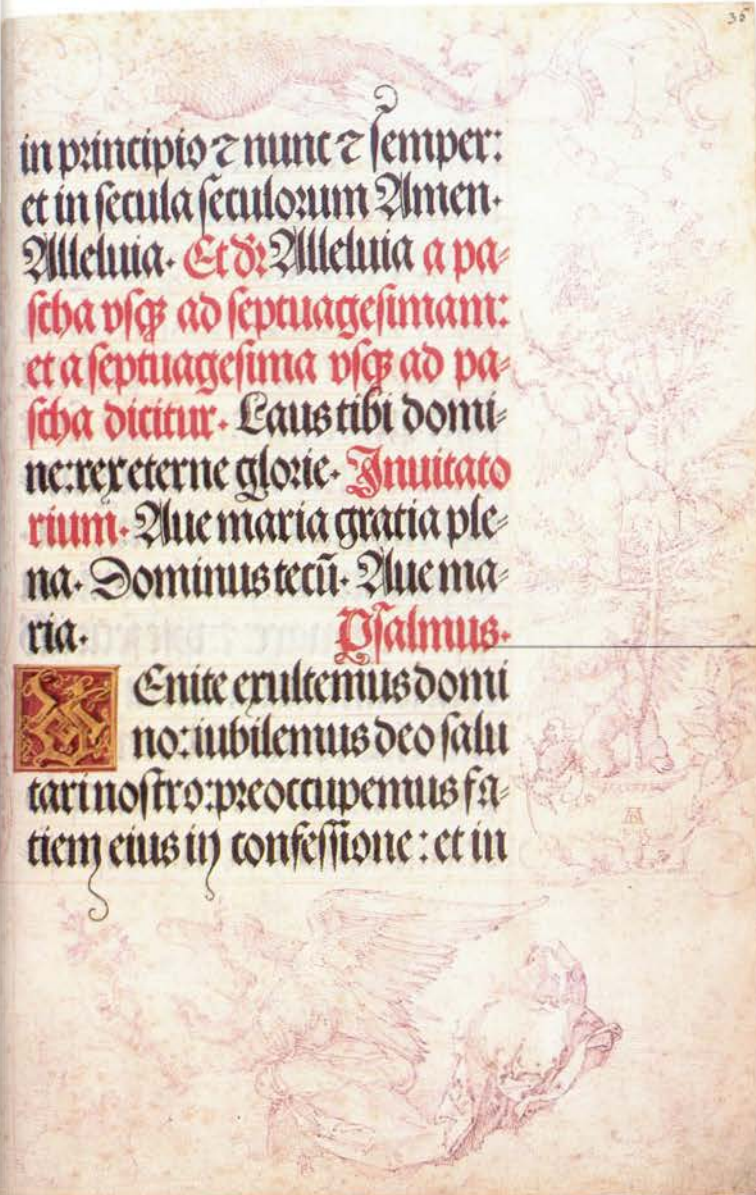 35
in principio ⁊ nunc ⁊ ſemper:
et in ſecula ſeculorum Amen.
Alleluia. Et dr̄ Alleluia a pa⸗
ſcha vſqꝫ ad ſeptuageſimam:
et a ſeptuageſima vſqꝫ ad pa⸗
ſcha dicitur. Laus tibi domi⸗
ne: rex eterne glorie. Inuitato
rium. Aue maria gratia ple⸗
na. Dominus tecū. Aue ma⸗
ria. Pſalmus.
VEnite exultemus domi
no: iubilemus deo ſalu
tari noſtro: preoccupemus fa⸗
ciem eius in confeſſione: et in
AD